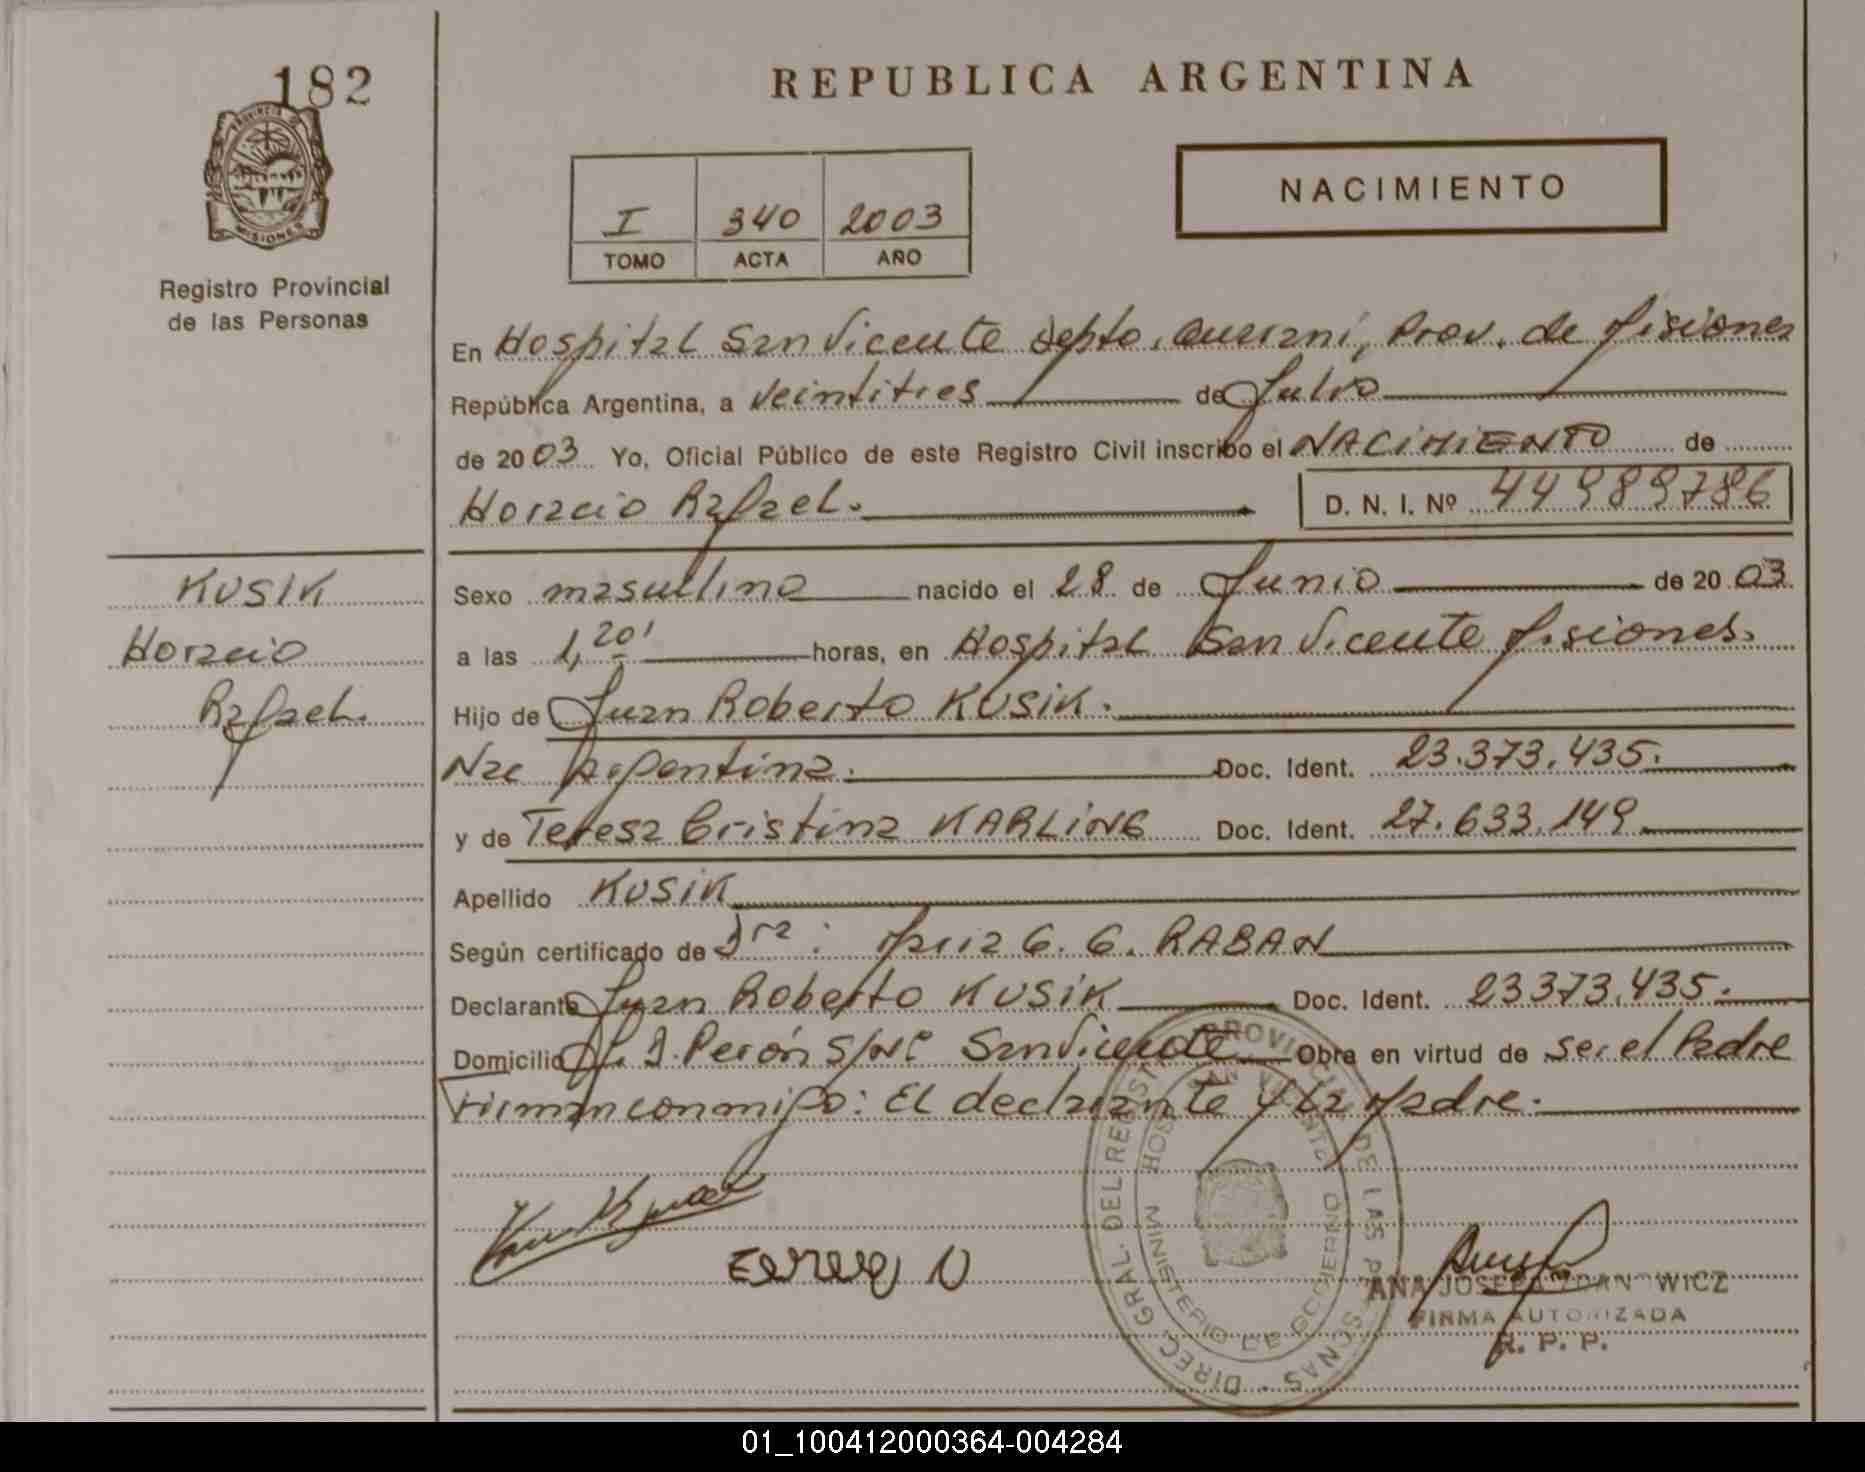 182
REPUBLICA ARGENTINA
PROVINCIA DE
MISIONES
Registro Provincial
de las Personas
NACIMIENTO
I 340 2003
TOMO ACTA AÑO
En Hospital San Vicente Depto. Guaraní, Prov. de Misiones
República Argentina, a veintitres de Julio
de 2003 Yo, Oficial Público de este Registro Civil inscribo el NACIMIENTO de
Horacio Rafael.
D. N. I. Nº 44989786
KUSIK
Horacio
Rafael.
Sexo masculino nacido el 28 de Junio de 2003
a las 1,20' horas, en Hospital San Vicente Misiones.
Hijo de Juan Roberto KUSIK.
Nac Argentina. Doc. Ident. 23.373.435.
y de Teresa Cristina KARLING Doc. Ident. 27.633.149
Apellido KUSIK
Según certificado de Dra: Maria G. G. RABAN
Declarante Juan Roberto KUSIK Doc. Ident. 23373.435.
Domicilio J. Perón S/Nº San Vicente Obra en virtud de ser el Padre
Firman conmigo: El declarante y la Madre.
DIREC. GRAL. DEL REGIST. PROVINCIAL DE LAS PERSONAS
HOSP. SAN VICENTE
MINISTERIO DE GOBIERNO
ANA JOSEFA ZDANOWICZ
FIRMA AUTORIZADA
R. P. P.
01_100412000364-004284